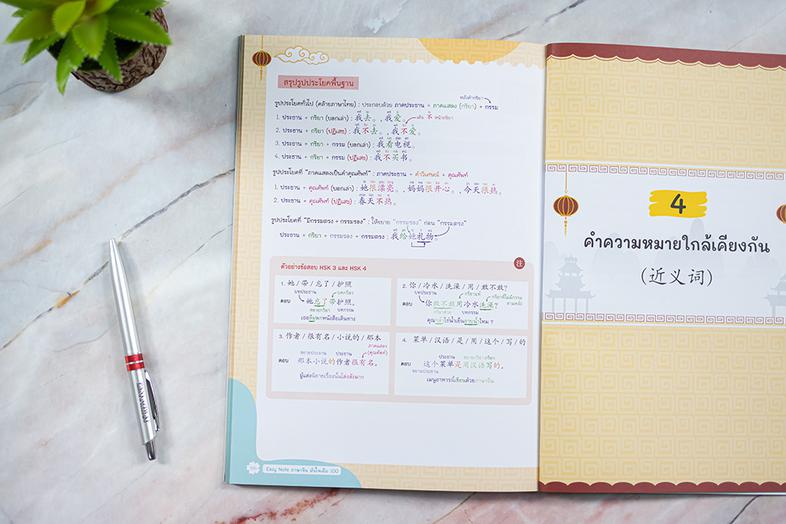 สรุปรูปประโยคพื้นฐาน
หลังคำกริยา
รูปประโยคทั่วไป (คล้ายภาษาไทย) : ประกอบด้วย ภาคประธาน + ภาคแสดง (กริยา) + กรรม
1. ประธาน + กริยา (บอกเล่า) : 我去。, 我爱。
เติม 不 หน้ากริยา
2. ประธาน + กริยา (ปฏิเสธ) : 我不去。, 我不爱。
3. ประธาน + กริยา + กรรม (บอกเล่า) : 我看电视。
4. ประธาน + กริยา + กรรม (ปฏิเสธ) : 我不买书。
รูปประโยคที่ "ภาคแสดงเป็นคำคุณศัพท์" : ภาคประธาน + คำวิเศษณ์ + คุณศัพท์
1. ประธาน + คุณศัพท์ (บอกเล่า) : 她很漂亮。, 妈妈很开心。, 今天很热。
2. ประธาน + คุณศัพท์ (ปฏิเสธ) : 春天不热。
รูปประโยคที่ "มีกรรมตรง + กรรมรอง" : ให้ขยาย "กรรมรอง" ก่อน "กรรมตรง"
ประธาน + กริยา + กรรมรอง + กรรมตรง : 我给她礼物。
ตัวอย่างข้อสอบ HSK 3 และ HSK 4
注
1. 她 / 带 / 忘了 / 护照
ตอบ 她忘了带护照。
เธอลืมพกหนังสือเดินทาง
2. 你 / 冷水 / 洗澡 / 用 / 敢不敢?
ตอบ 你敢不敢用冷水洗澡?
คุณกล้าใช้น้ำเย็นอาบน้ำไหม ?
3. 作者 / 很有名 / 小说的 / 那本
ภาคแสดง
(คุณศัพท์)
ตอบ 那本小说的作者很有名。
ผู้แต่งนิยายเรื่องนั้นโด่งดังมาก
4. 菜单 / 汉语 / 是 / 用 / 这个 / 写 / 的
ตอบ 这个菜单是用汉语写的。
เมนูอาหารนี้เขียนด้วยภาษาจีน
Easy Note ภาษาจีน มั่นใจเต็ม 100
4
คำความหมายใกล้เคียงกัน
(近义词)